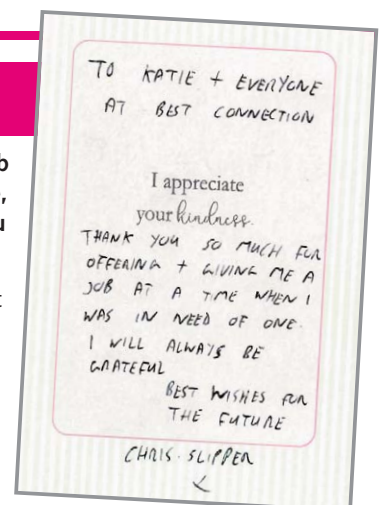 TO KATIE + EVERYONE
AT BEST CONNECTION
I appreciate
your kindness.
THANK YOU SO MUCH FOR
OFFERING + GIVING ME A
JOB AT A TIME WHEN I
WAS IN NEED OF ONE.
I WILL ALWAYS BE
GRATEFUL
BEST WISHES FOR
THE FUTURE
CHRIS. SLIPPER